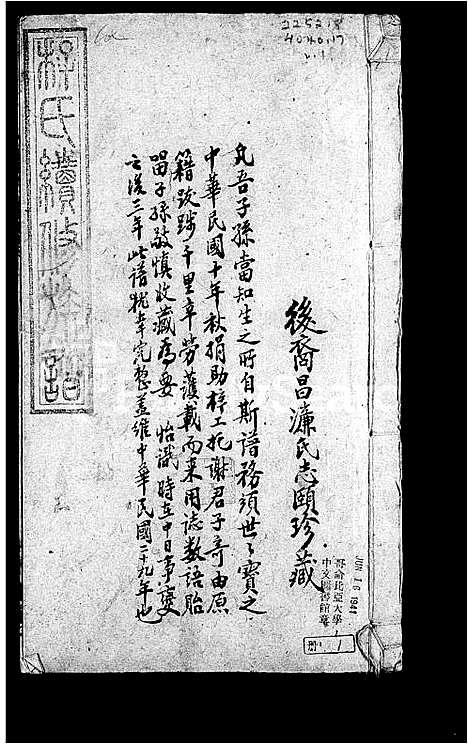 2252.8
4040.17
v.1
後裔昌濂氏志頤珍藏
凡吾子孫當知生之所自斯譜務須世々寶之
中華民國十年秋捐助梓工托謝君子奇由原
籍跋踄千里辛勞護載而來用誌數語貽
留子孫敬慎收藏為要 怡識 時在中日事變
之後三年此譜犹幸完整蓋維中華民國二十九年也
氏續修族譜
JUN 16 1941
哥倫比亞大學
中文圖書館藏
冊 1